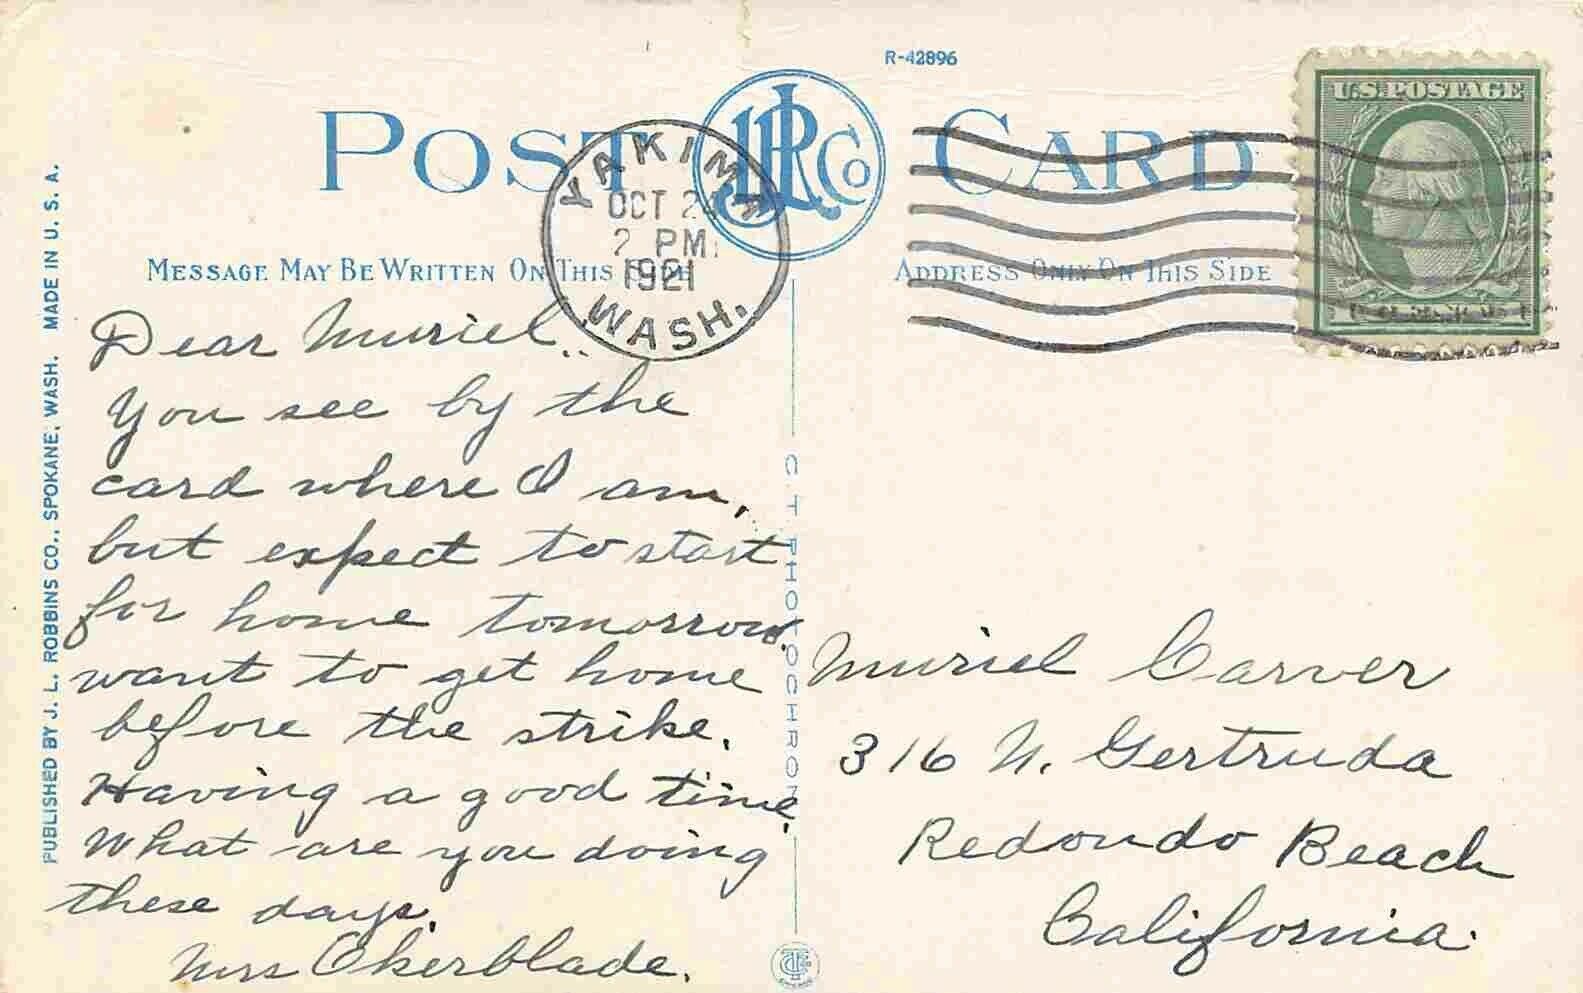 R-42896
POST CARD
JLR Co
YAKIMA
OCT 24
2 PM
1921
WASH.
U.S. POSTAGE
MESSAGE MAY BE WRITTEN ON THIS SIDE
ADDRESS ONLY ON THIS SIDE
PUBLISHED BY J. L. ROBBINS CO., SPOKANE, WASH. MADE IN U. S. A.
Dear Muriel..
You see by the
card where I am,
but expect to start
for home tomorrow.
want to get home
before the strike.
Having a good time.
What are you doing
these days.
Mrs Okerblade.
C. T. PHOTOCHROM
Muriel Carver
316 N. Gertruda
Redondo Beach
California.